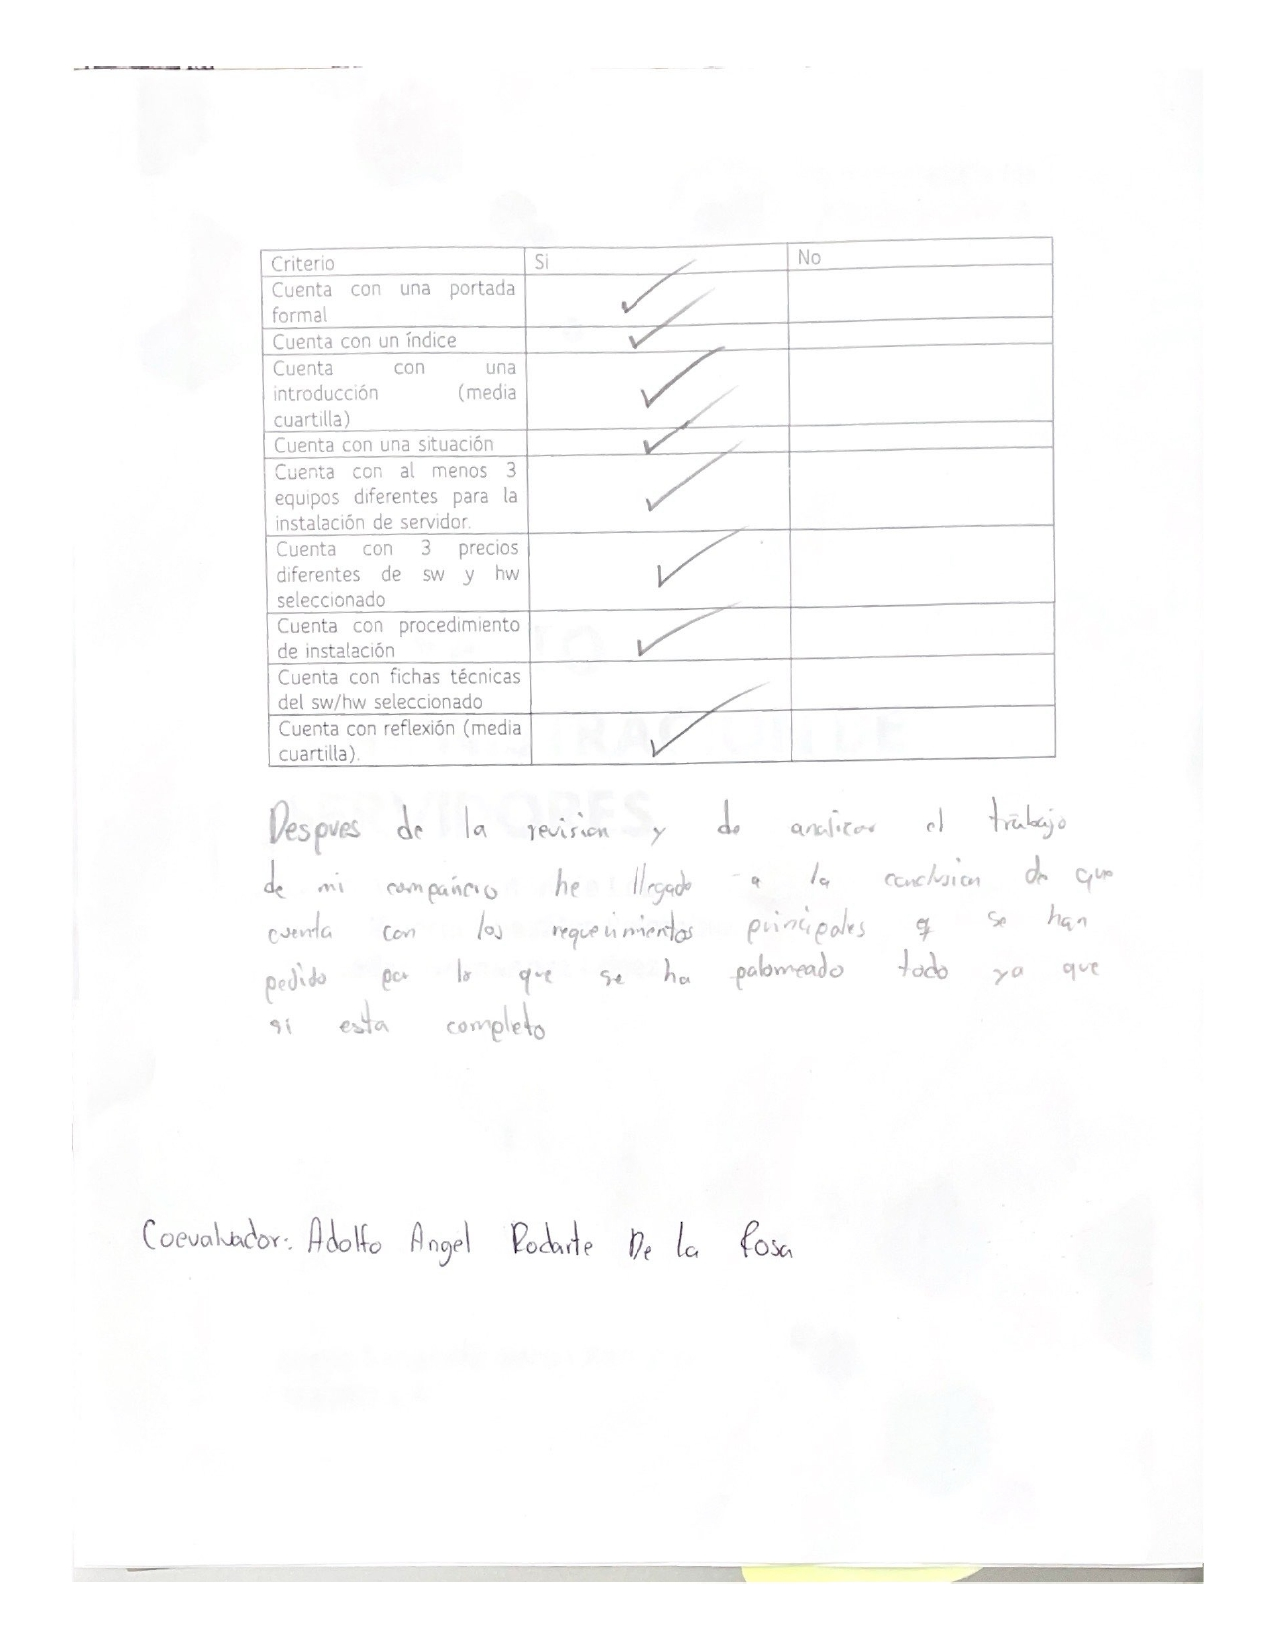 Criterio Si No
Cuenta con una portada
formal ✓
Cuenta con un índice ✓
Cuenta con una
introducción (media
cuartilla) ✓
Cuenta con una situación ✓
Cuenta con al menos 3
equipos diferentes para la
instalación de servidor. ✓
Cuenta con 3 precios
diferentes de sw y hw
seleccionado ✓
Cuenta con procedimiento
de instalación ✓
Cuenta con fichas técnicas
del sw/hw seleccionado
Cuenta con reflexión (media
cuartilla). ✓
Despues de la revision y de analizar el trabajo
de mi compañero he llegado a la conclusion de que
cuenta con los requerimientos principales q se han
pedido por lo que se ha palomeado todo ya que
si esta completo
Coevaluador: Adolfo Angel Rodarte De la Rosa